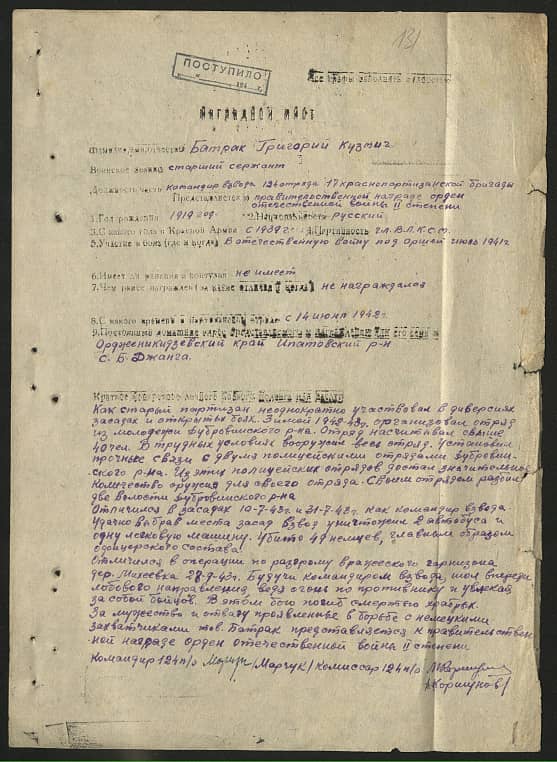 131
ПОСТУПИЛО
194 г.
Все графы заполнять полностью
НАГРАДНОЙ ЛИСТ
Батрак Григорий Кузмич
Воинское звание старший сержант
Должность часть командир взвода 124 отряда 17 краснопартизанской бригады
Представляется правительственной награде орден
отечественной войны II степени
1. Год рождения 1919 год. 2. Национальность русский
3. С какого года в Красной Армии с 1939 г 4. Партийность чл. В.Л.К.С.М.
5. Участие в боях (где и когда) В отечественную войну под Оршей июль 1941г
6. Имеет ли ранения и контузии не имеет
7. Чем ранее награжден за какие отличия (когда) не награждался
8. С какого времени в с 14 июня 1942г.
9. Постоянный домашний адрес
Орджоникидзевский край Ипатовский р-н
с. Б-Джанга.
Как старый партизан неоднократно участвовал в диверсиях
засадах и открытых боях. Зимой 1942-43г. организовал отряд
из молодежи Дубровинского р-на. Отряд насчитывал свыше
40 чел. В трудных условиях вооружил весь отряд. Установил
прочные связи с двумя полицейскими отрядами Дубровин-
ского р-на. Из этих полицейских отрядов достал значительное
количество оружия для своего отряда. Своим отрядом
две волости Дубровинского р-на
Отличился в засадах 10-7-43г и 31-7-43г. Как командир взвода
удачно выбрав места засад взвод уничтожил 2 автобуса и
одну легковую машину. Убито 49 немцев, главным образом
офицерского состава.
Отличился в операции по разгрому вражеского гарнизона
дер. Михеевка 28-9-43г. Будучи командиром взвода, шел впереди
лобового направления, ведя огонь по противнику и увлекая
за собой бойцов. В этом бою погиб смертью храбрых.
За мужество и отвагу проявленные в борьбе с немецкими
захватчиками тов. Батрак представляется к правительствен-
ной награде орден отечественной войны II степени
Командир 124 п/о /Марчук/ Комиссар 124 п/о
/Коршунов/